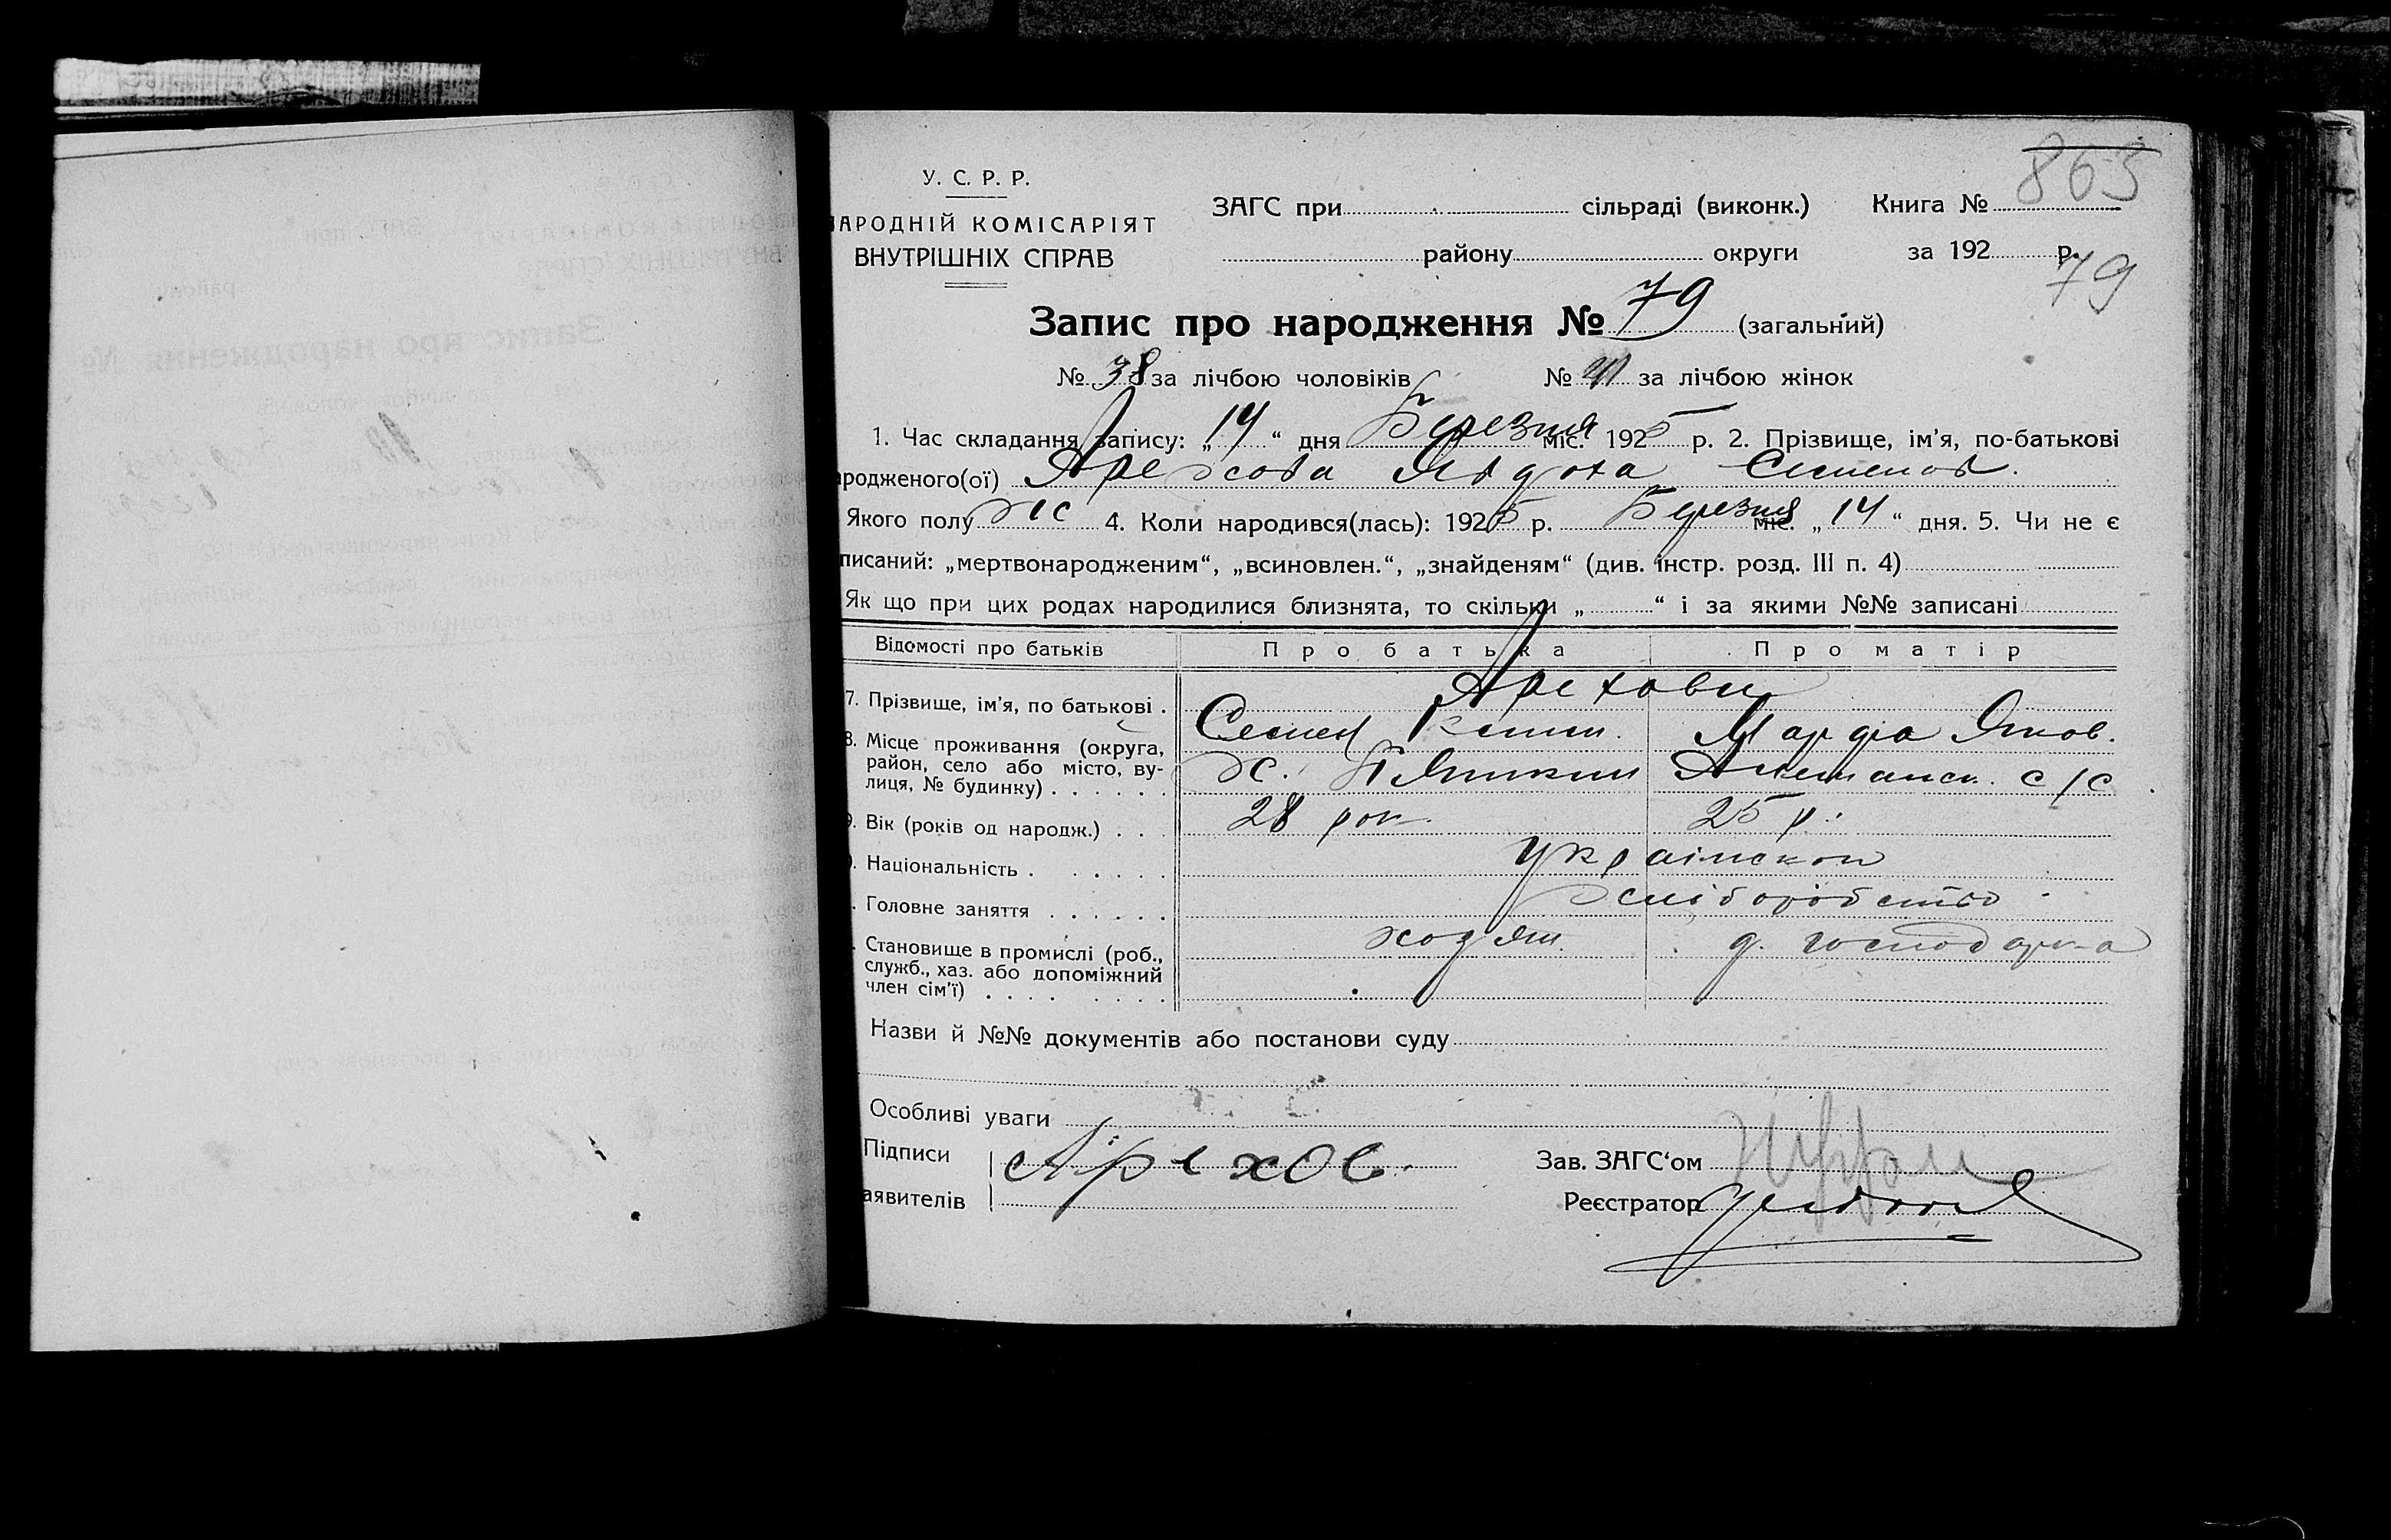 865
У. С. Р. Р.
АРОДНІЙ КОМІСАРІЯТ
ВНУТРІШНІХ СПРАВ
ЗАГС при сільраді (виконк.) Книга №
району округи за 192 р.
79
Запис про народження № 79 (загальний)
№ 38 за лічбою чоловіків № 41 за лічбою жінок
1. Час складання запису: „ 14 “ дня Березня міс. 1925 р. 2. Прізвище, ім’я, по-батькові
ародженого(ої) Арехова Явдоха Семенов.
Якого полу жс 4. Коли народився(лась): 1925 р. Березня міс. „ 14 “ дня. 5. Чи не є
писаний: „мертвонародженим“, „всиновлен.“, „знайденям“ (див. інстр. розд. III п. 4)
Як що при цих родах народилися близнята, то скільки „ “ і за якими №№ записані
Відомості про батьків Про батька Про матір
Арехови
7. Прізвище, ім’я, по батькові . Семен Марфа Яков.
8. Місце проживання (округа, район, село або місто, вулиця, № будинку) . . . . . . х. с/с
9. Вік (років од народж.) . . . 28 рок. 25 р.
). Національність . . . . . . Українской
. Головне заняття . . . . . . хліборобство
. Становище в промислі (роб., служб., хаз. або допоміжний член сім’ї) . . . . . . . . хозяин. д. господарка
Назви й №№ документів або постанови суду
Особливі уваги
Підписи
аявителів
Арехов.
Зав. ЗАГС‘ом
Реєстратор